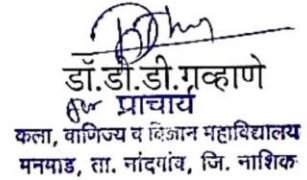 डॉ.डी.डी.गव्हाणे
for प्राचार्य
कला, वाणिज्य व विज्ञान महाविद्यालय
मनमाड, ता. नांदगांव, जि. नाशिक